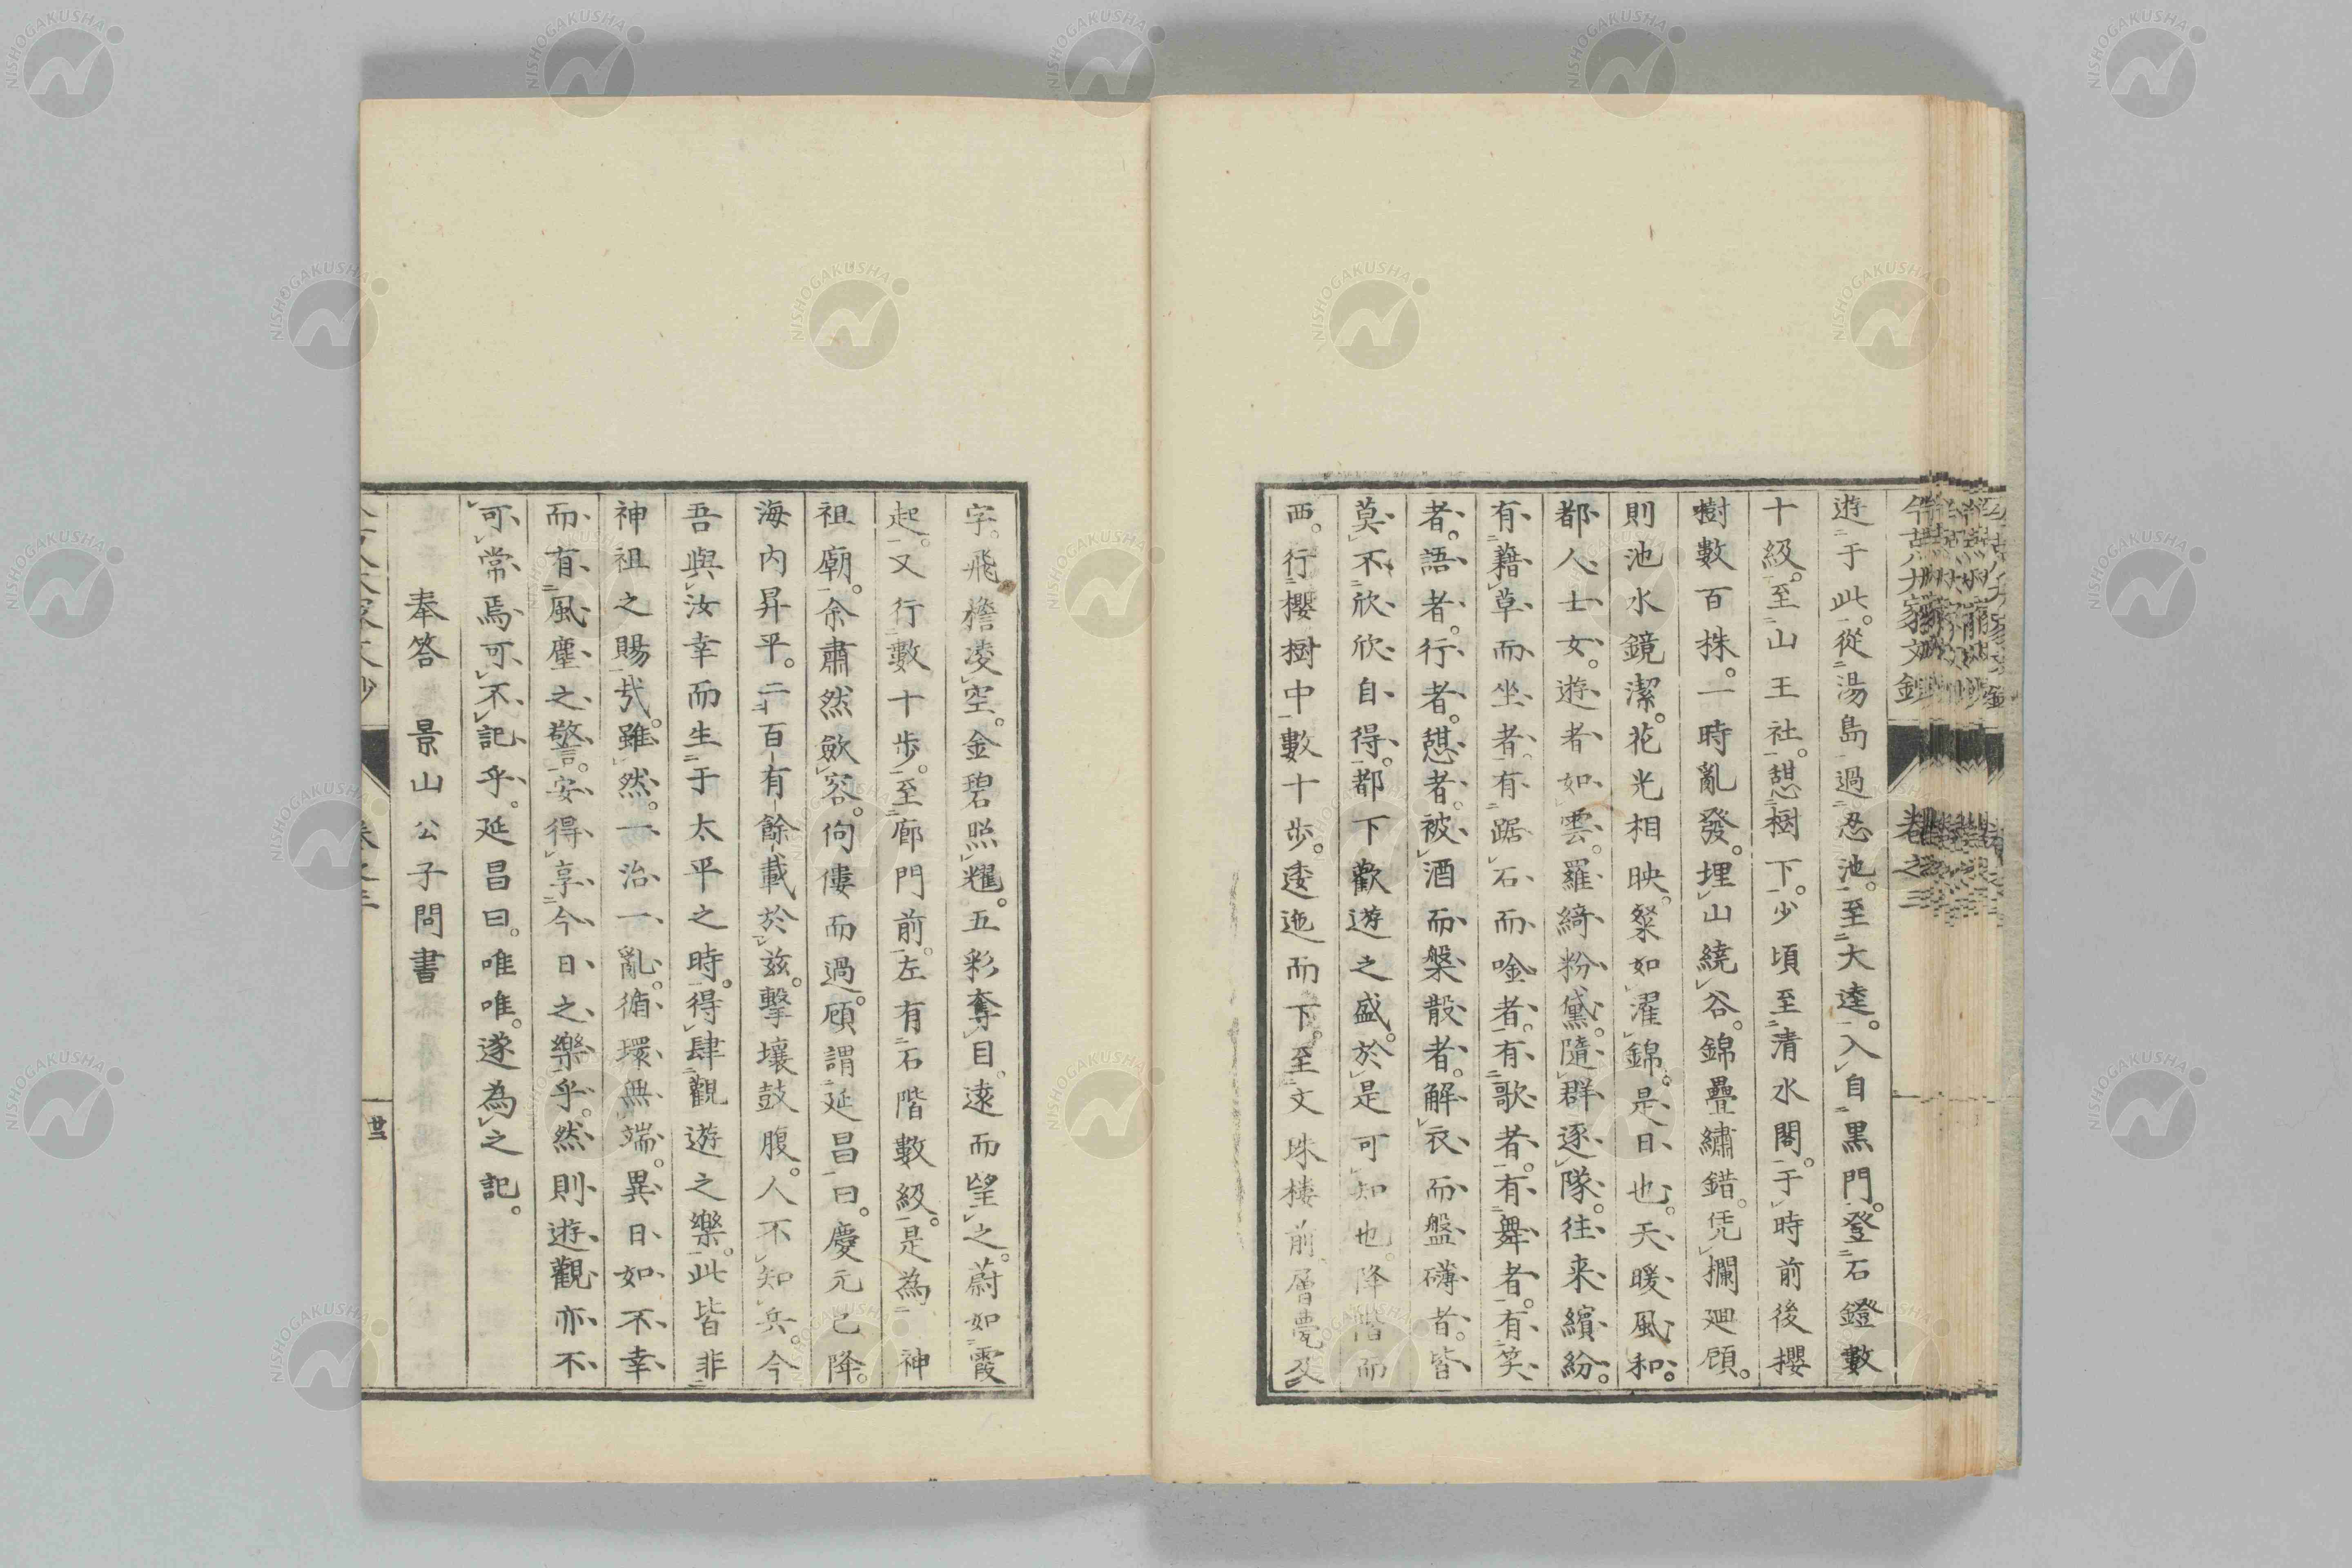 今古八大家文鈔 卷之三
遊于此。從湯島過忍池。至大逵。入自黒門。登石鐙數
十級。至山王社。憇樹下。少頃至清水閣。于時前後櫻
樹數百株。一時亂發。埋山繞谷。錦疊繡錯。凭攔廻顧。
則池水鏡潔。花光相映。粲如濯錦。是日也。天暖風和。
都人士女。遊者如雲。羅綺粉黛。隨群逐隊。往来繽紛。
有藉草而坐者。有踞石而唫者。有歌者。有舞者。有笑
者。語者。行者。憇者。被酒而槃散者。解衣而盤礴者。皆
莫不欣欣自得。都下歡遊之盛。於是可知也。降階而
西。行櫻樹中數十步。逶迤而下。至文珠樓前。層甍及
宇。飛簷凌空。金碧照耀。五彩奪目。遠而望之。蔚如霞
起。又行數十步。至廊門前。左有石階數級。是為神
祖廟。余肅然斂容。佝僂而過。顧謂延昌曰。慶元已降。
海內昇平。二百有餘載於玆。擊壤鼓腹。人不知兵。今
吾與汝幸而生于太平之時。得肆觀遊之樂。此皆非
神祖之賜㢤。雖然。一治一亂。循環無端。異日如不幸
而有風塵之警。安得享今日之樂乎。然則遊觀亦不
可常焉。可不記乎。延昌曰。唯唯。遂為之記。
奉答 景山公子問書
卷之三 廿三
NISHOGAKUSHA